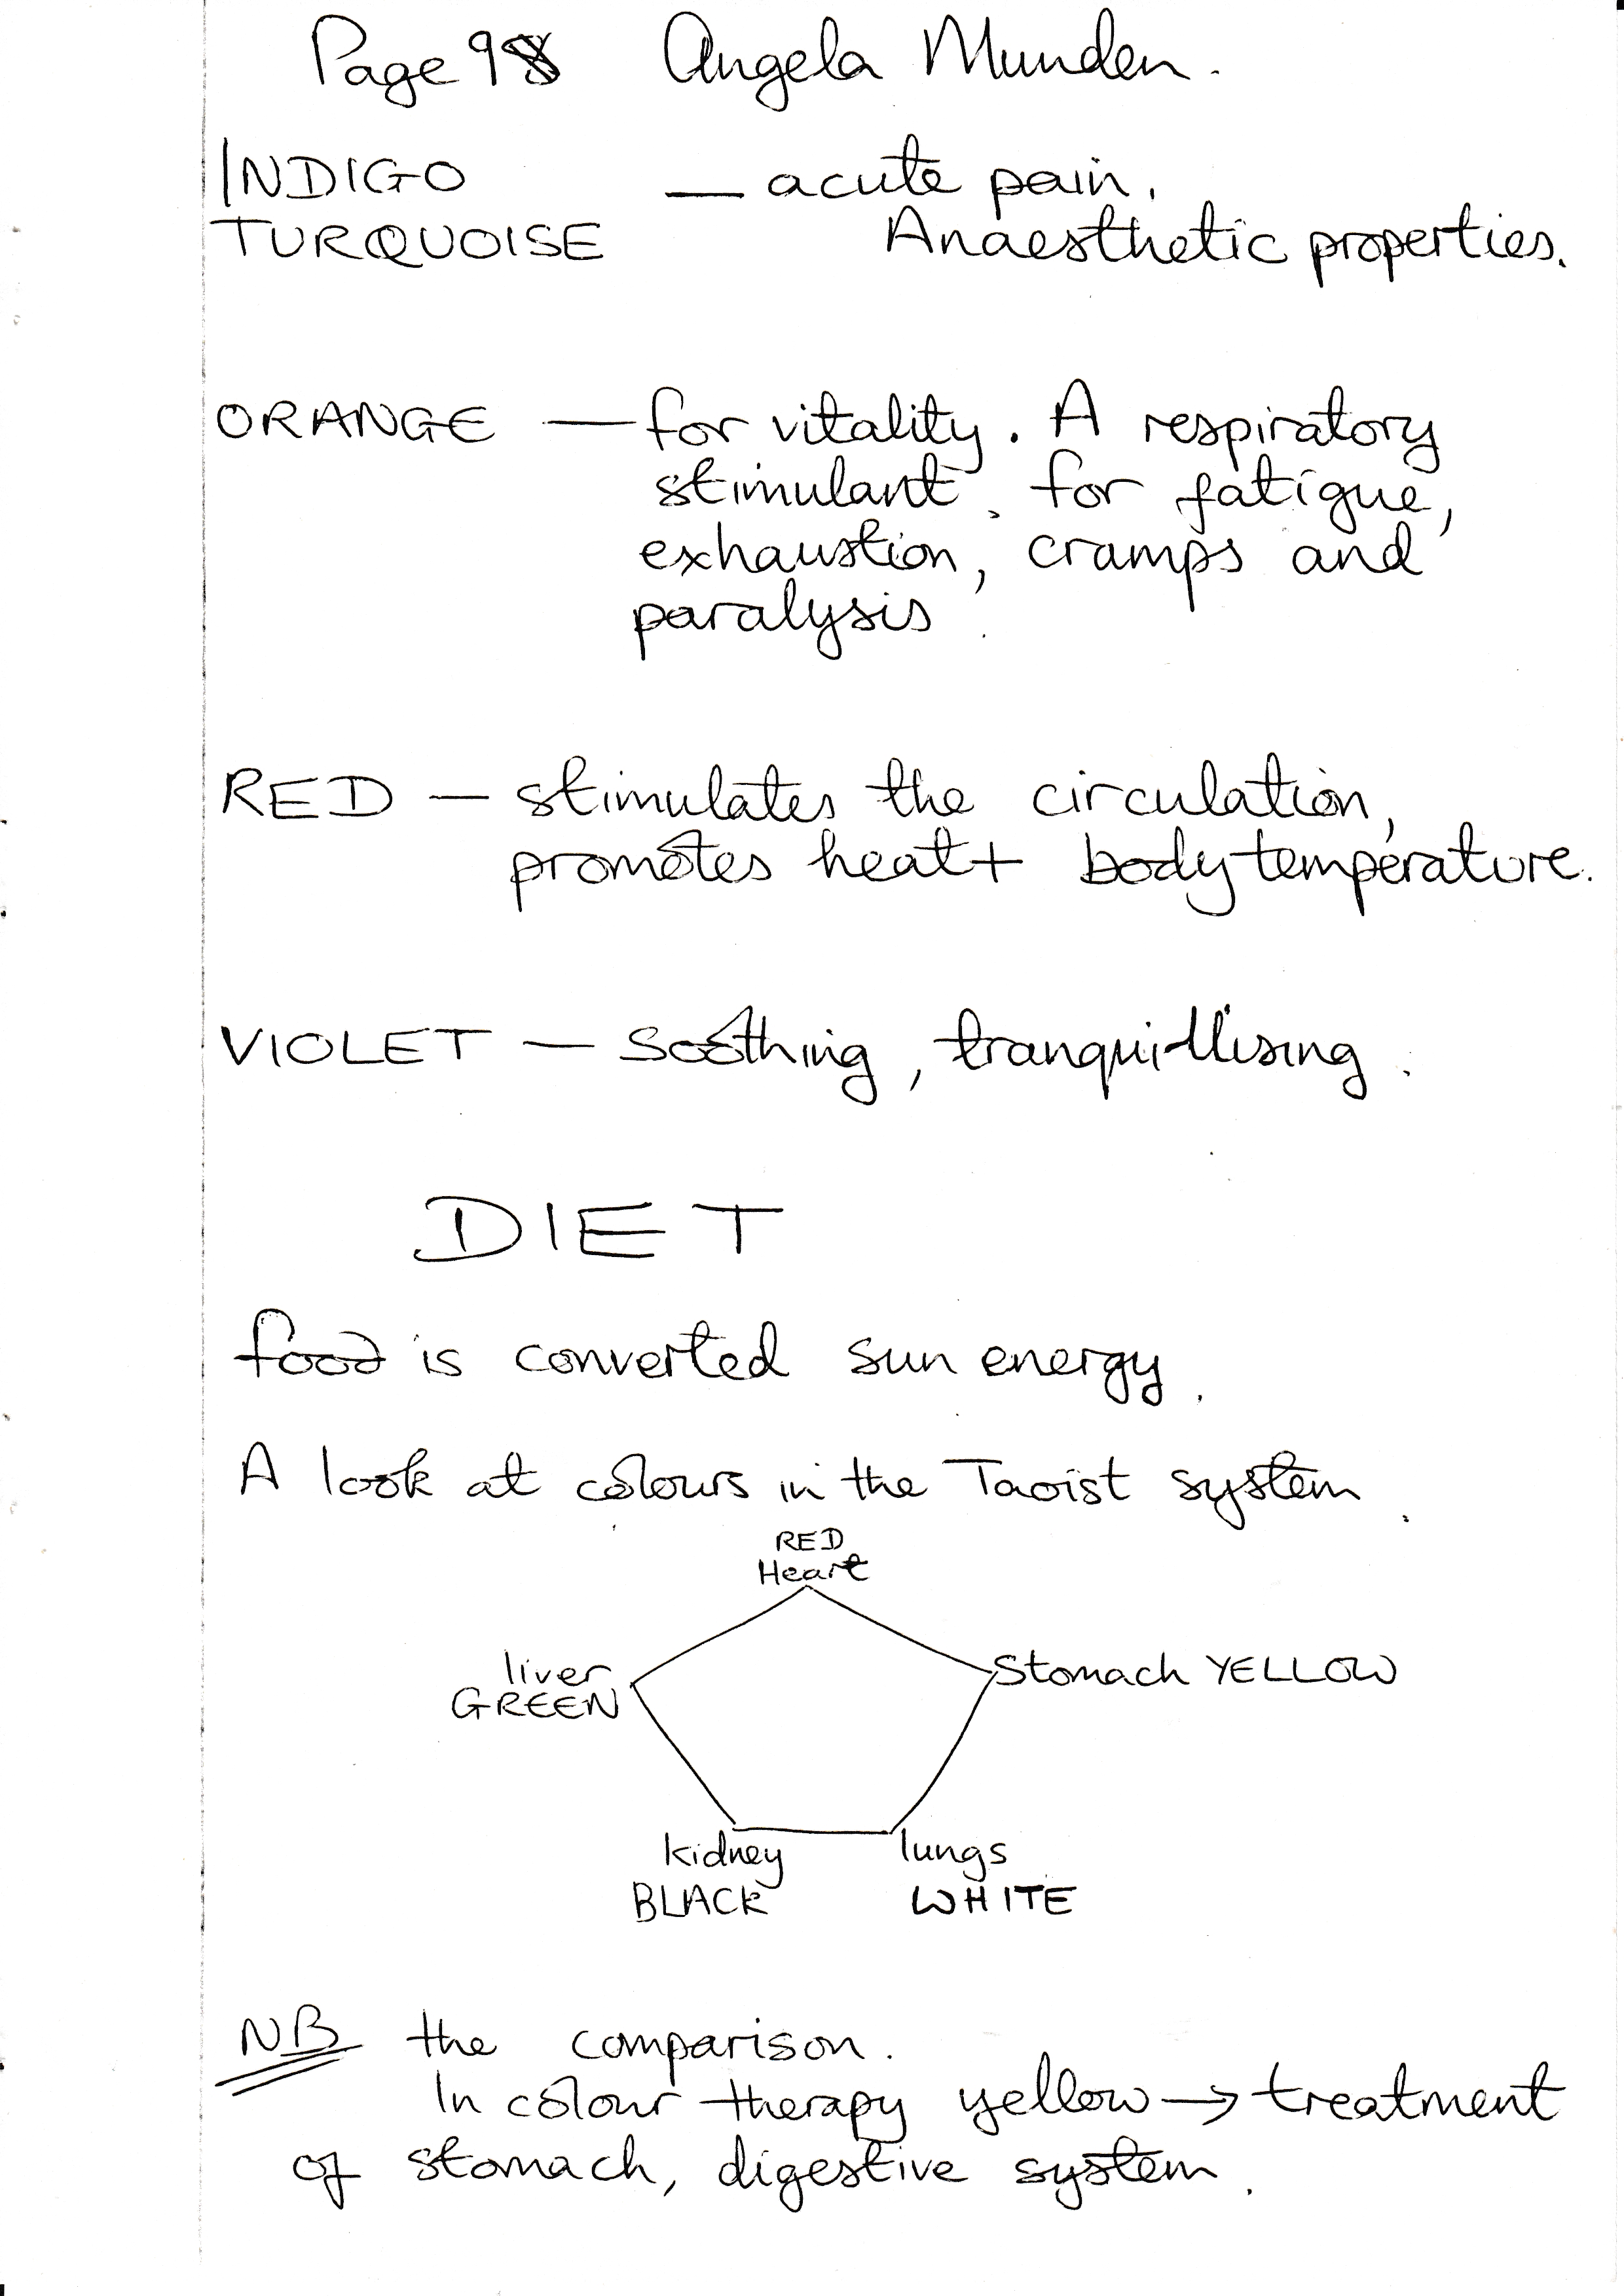 Page 98 Angela Munden.
INDIGO — acute pain.
TURQUOISE Anaesthetic properties.
ORANGE — for vitality. A respiratory
stimulant. for fatigue,
exhaustion, cramps and
paralysis.
RED — stimulates the circulation,
promotes heat + body temperature.
VIOLET — Soothing, tranquillising.
DIET
food is converted sun energy.
A look at colours in the Taoist system.
RED
Heart
liver
GREEN
Stomach YELLOW
kidney
BLACK
lungs
WHITE
NB the comparison.
In colour therapy yellow → treatment
of stomach, digestive system.